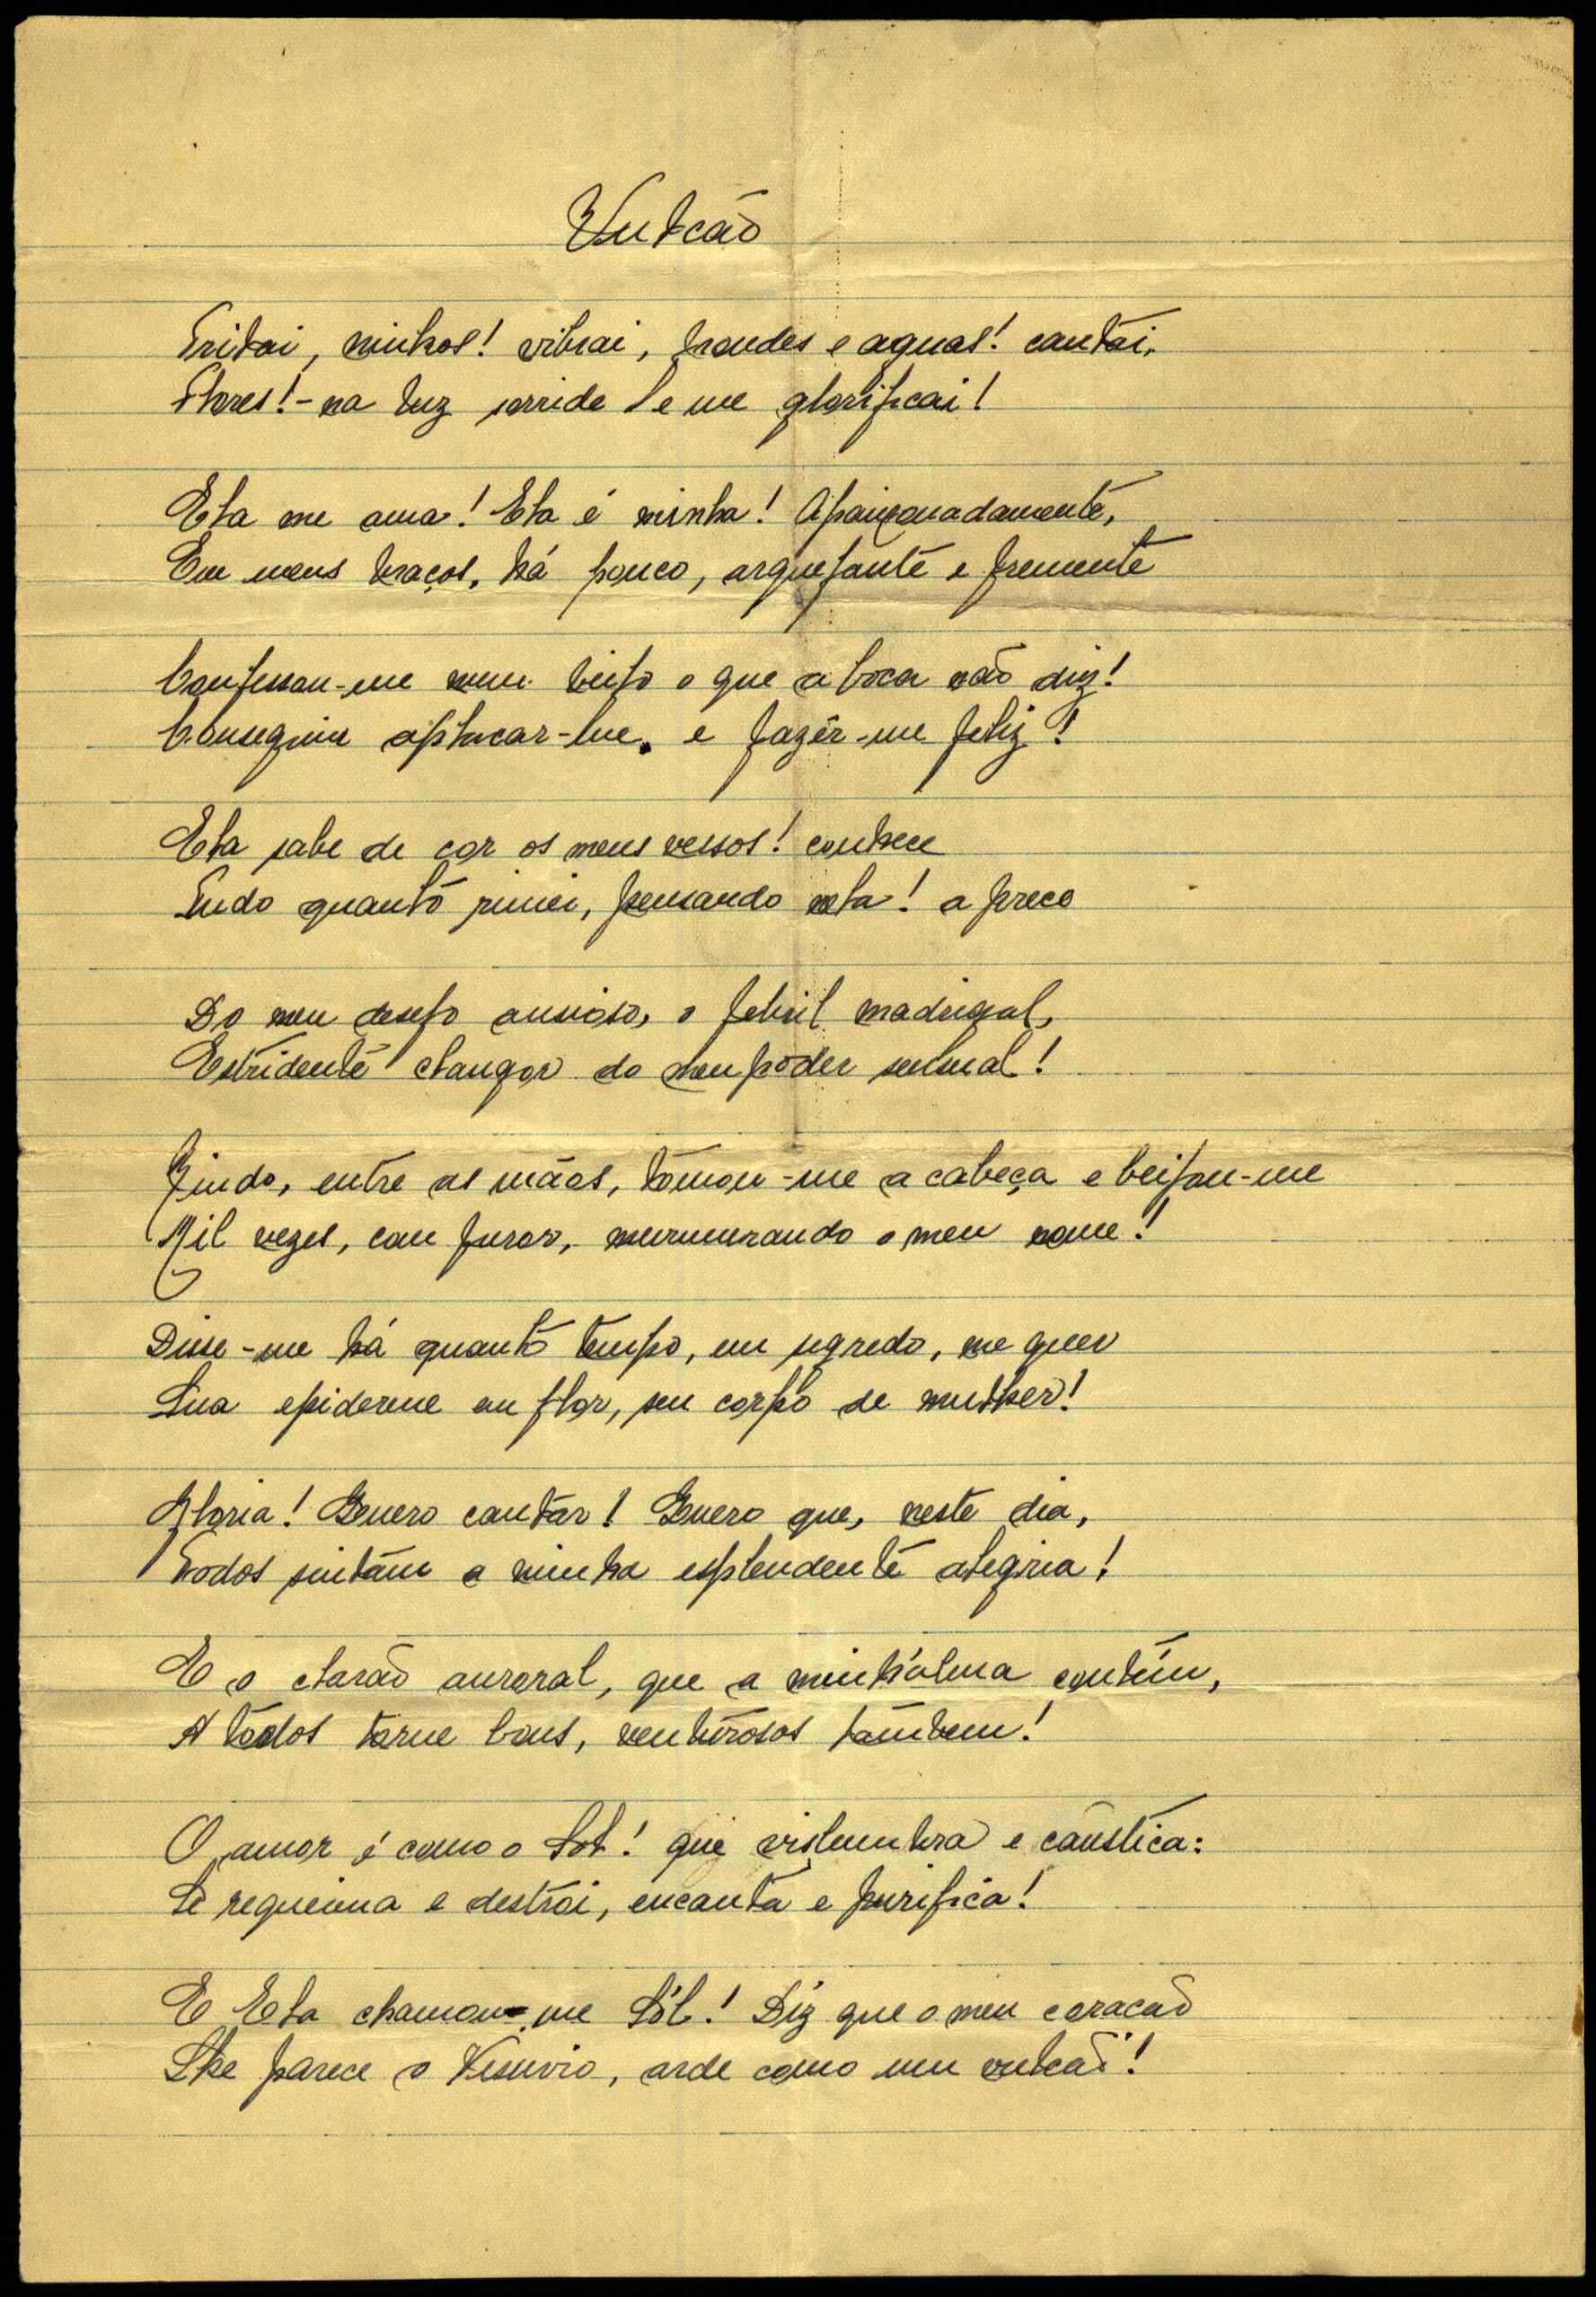 Vulcão
Trilai, ninhos! vibrai, frondes e aguas! cantai,
Flores! - na luz sorride! e me glorificai!
Ela me ama! Ela é minha! Apaixonadamente,
Em meus braços, há pouco, arquejante e fremente
Confessou-me num beijo o que a boca não diz!
Conseguiu aplacar-me, e fazêr-me feliz!
Ela sabe de cor os meus versos! conhece
Tudo quanto rimei, pensando nela! a prece
Do meu desejo ansioso, o febril madrigal,
Estridente clangor do meu poder sensual!
Rindo, entre as mãos, tomou-me a cabeça e beijou-me
Mil vezes, com furor, murmurando o meu nome!
Disse-me há quanto tempo, em segredo, me quer
Sua epiderme em flor, seu corpo de mulher!
Gloria! Quero cantar! Quero que, neste dia,
Todos sintam a minha esplendente alegria!
E o clarão auroral, que a minh'alma contém,
A todos torne bons, venturosos tambem!
O amor é como o Sol! que vislumbra e caustica:
Se requeima e destrói, encanta e purifica!
E Ela chamou-me Sól! Diz que o meu coracão
Lhe parece o Vesuvio, arde como um vulcão!